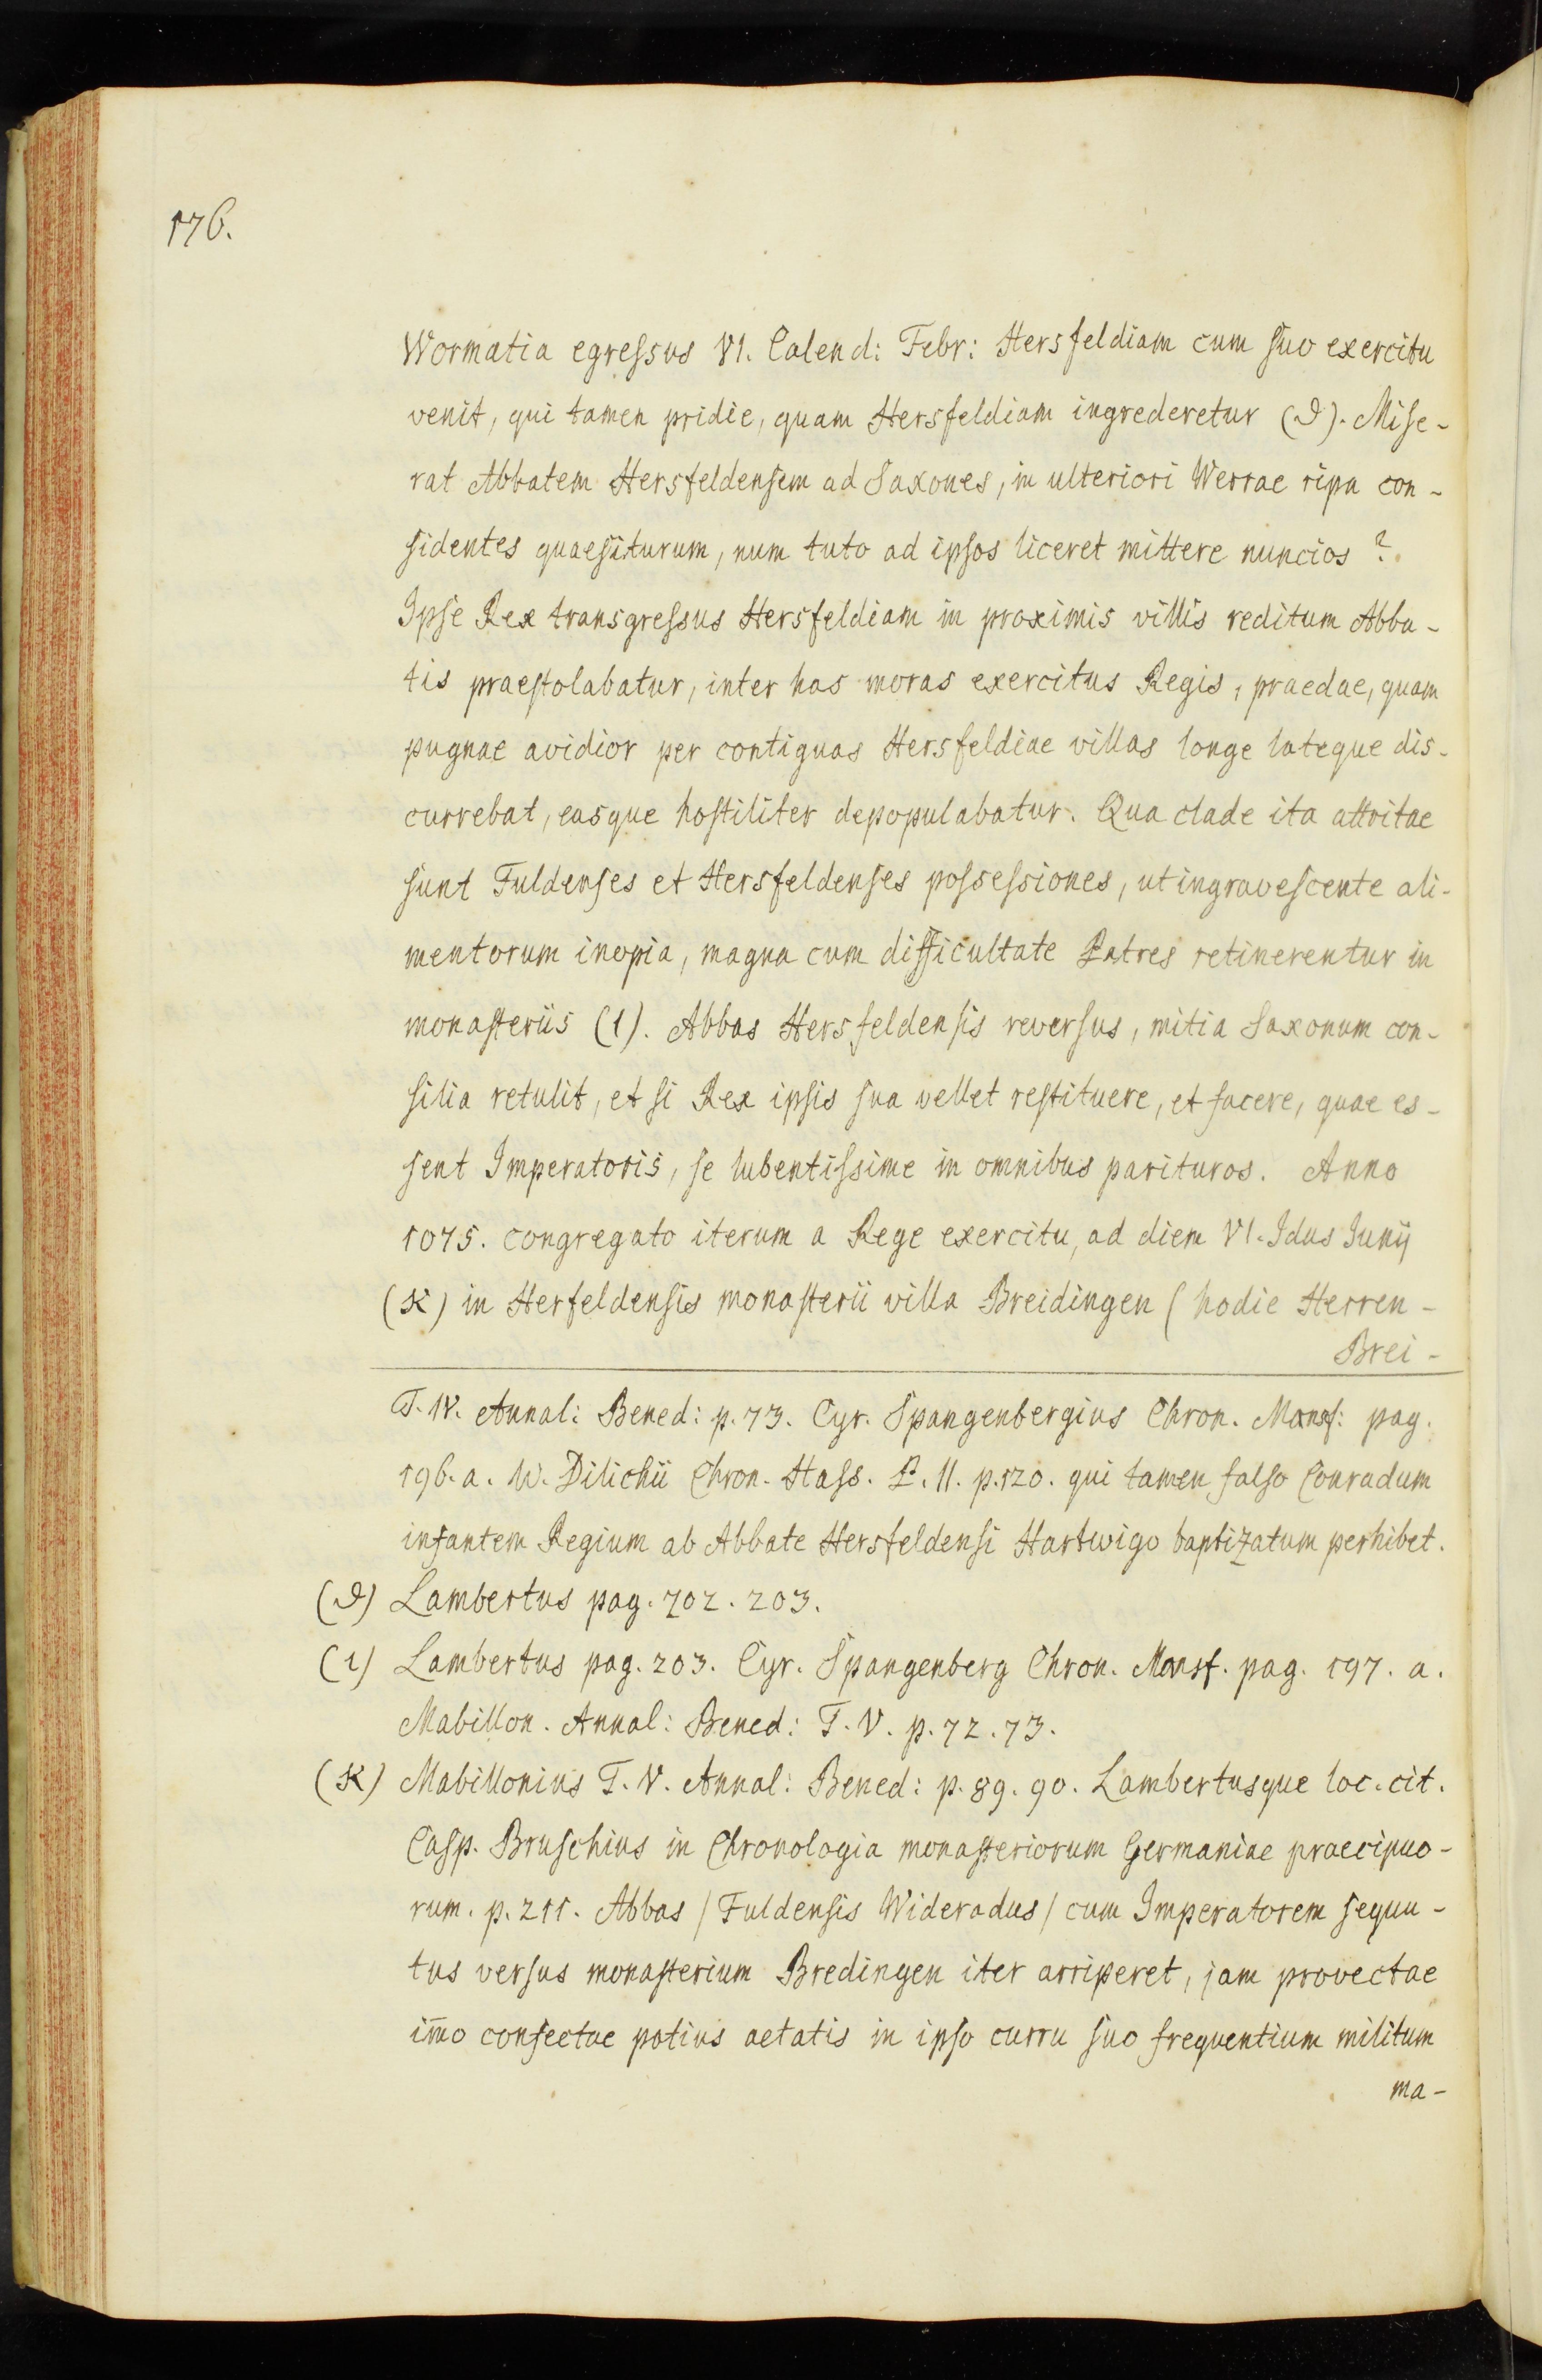 176.
Wormatia egressus VI. Calend: Febr: Hersfeldiam cum suo exercitu
venit, qui tamen pridie, quam Hersfeldiam ingrederetur (ϑ). Mise-
rat Abbatem Hersfeldensem ad Saxones, in ulteriori Werrae ripa con-
sidentes quaesiturum, num tuto ad ipsos liceret mittere nuncios?
Ipse Rex transgressus Hersfeldiam in proximis villis reditum Abba-
tis praestolabatur, inter has moras exercitus Regis, praedae, quam
pugnae avidior per contiguas Hersfeldiae villas longe lateque dis-
currebat, easque hostiliter depopulabatur. Qua clade ita attritae
sunt Fuldenses et Hersfeldenses possessiones, ut ingravescente ali-
mentorum inopia, magna cum difficultate Patres retinerentur in
monasteriis (ι). Abbas Hersfeldensis reversus, mitia Saxonum con-
silia retulit, et si Rex ipsis sua vellet restituere, et facere, quae es-
sent Imperatoris, se lubentissime in omnibus parituros. Anno
1075. congregato iterum a Rege exercitu, ad diem VI. Idus Junij
(ϰ) in Herfeldensis monasterii villa Breidingen (hodie Herren-
Brei-
T. IV. Annal: Bened: p. 73. Cyr. Spangenbergius Chron. Mansf: pag.
196. a. W. Dilichii Chron. Hass. P. II. p. 120. qui tamen falso Conradum
infantem Regium ab Abbate Hersfeldensi Hartwigo baptizatum perhibet.
(ϑ) Lambertus pag. 202. 203.
(ι) Lambertus pag. 203. Cyr. Spangenberg Chron. Mansf. pag. 197. a.
Mabillon. Annal: Bened: T. V. p. 72. 73.
(ϰ) Mabillonius T. V. Annal: Bened: p. 89. 90. Lambertusque loc. cit.
Casp. Bruschius in Chronologia monasteriorum Germaniae praecipuo-
rum. p. 211. Abbas / Fuldensis Wideradus / cum Imperatorem sequu-
tus versus monasterium Bredingen iter arriperet, jam provectae
im̄o confectae potius aetatis in ipso curru suo frequentium militum
ma-